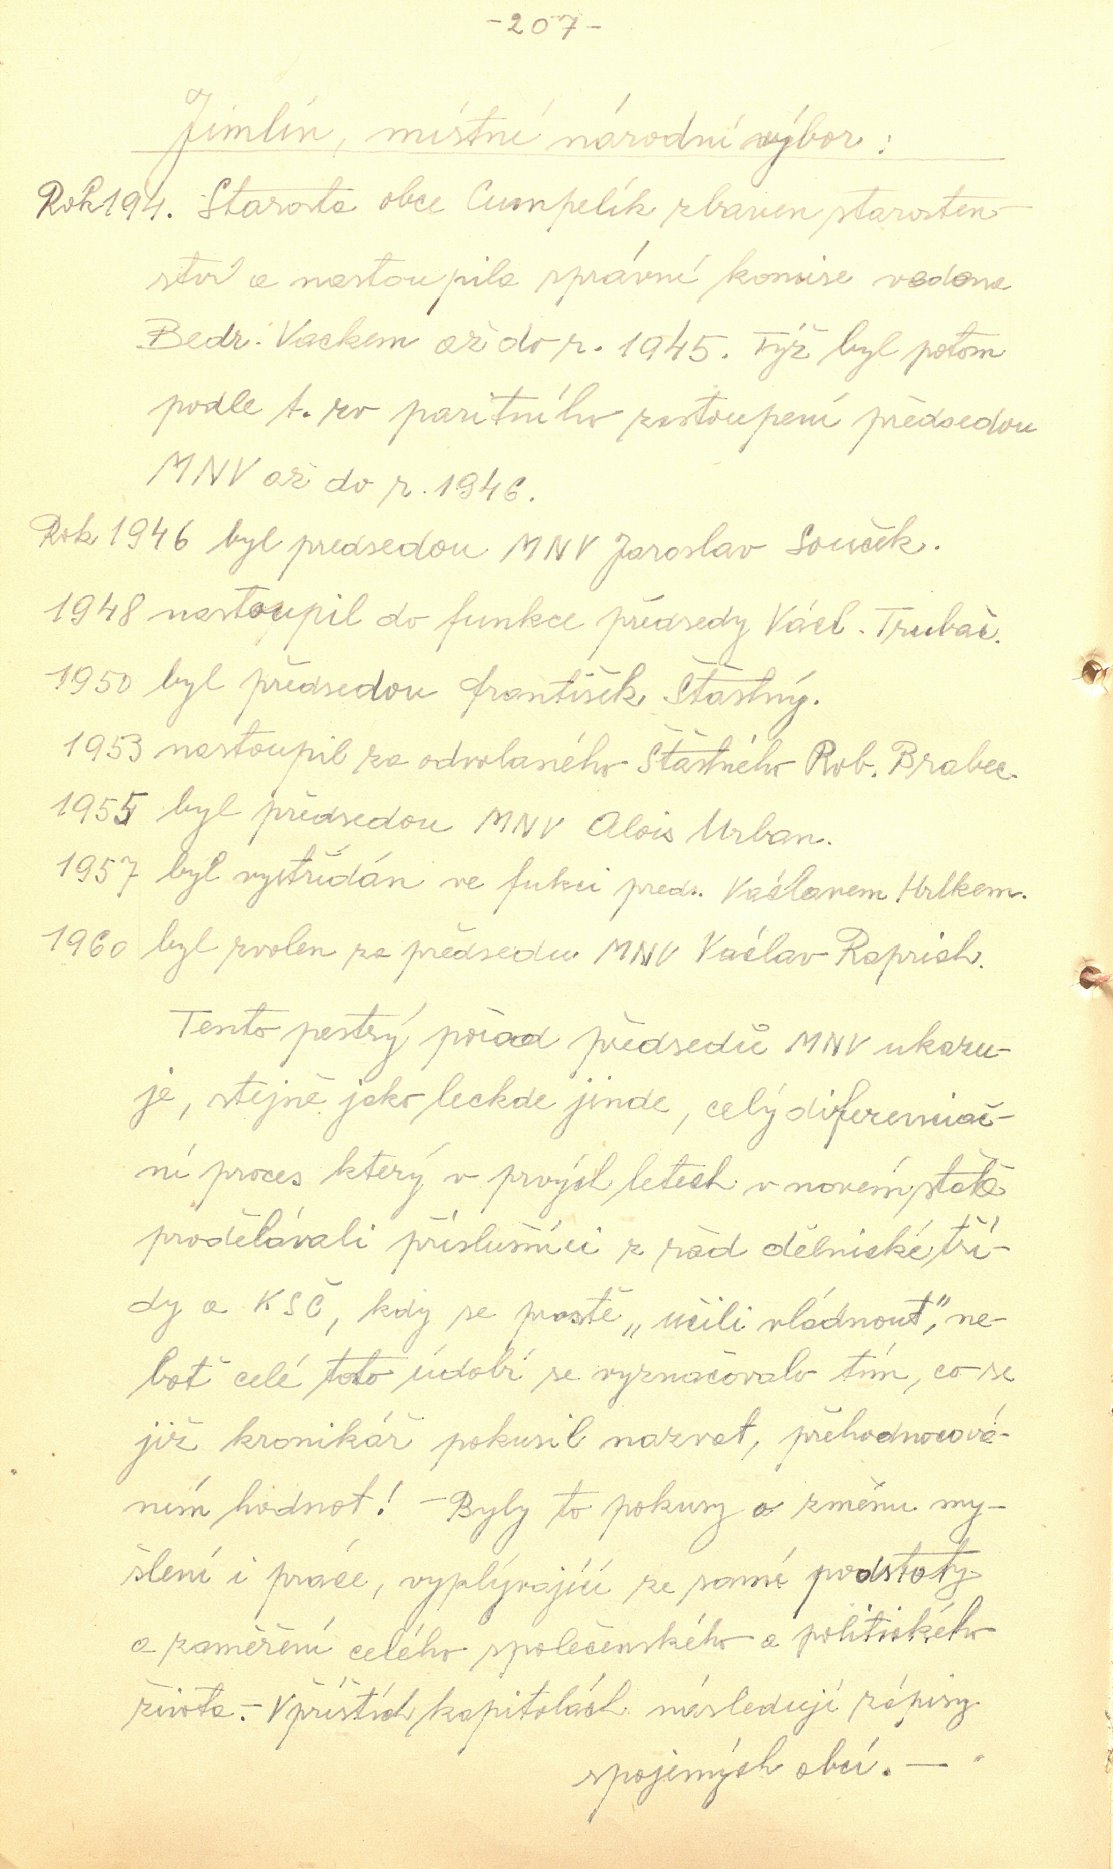 -207-
Jimlín, místní národní výbor:
Rok 194. Starosta obce Cumpelík zbaven starosten-
ství a nastoupila správní komise vedena
Bedř. Vackem až do r. 1945. Týž byl potom
podle t. zv paritního zastoupení předsedou
MNV až do r. 1946.
Rok 1946 byl předsedou MNV Jaroslav Souček.
1948 nastoupil do funkce předsedy Václ. Trubač.
1950 byl předsedou František Šťastný.
1953 nastoupil za odvolaného Šťastného Rob. Brabec.
1955 byl předsedou MNV Alois Urban.
1957 byl vystřídán ve fukci preds. Václavem Hrlkem.
1960 byl zvolen za předsedu MNV Václav Raprich.
Tento pestrý pořad předsedů MNV ukazu-
je, stejně jako leckde jinde, celý diferenciač-
ní proces který v prvých letech v novém státě
prodělávali příslušníci z řad dělnické tří-
dy a KSČ, kdy se prostě „učili vládnout", ne-
boť celé toto údobí se vyznačovalo tím, co se
již kronikář pokusil nazvat, přehodnocová-
ním hodnot! - Byly to pokusy o změnu my-
šlení i práce, vyplývající ze samé podstaty
a zaměření celého společenského a politického
života. - V příštích kapitolách následují zápisy
spojených obcí. —